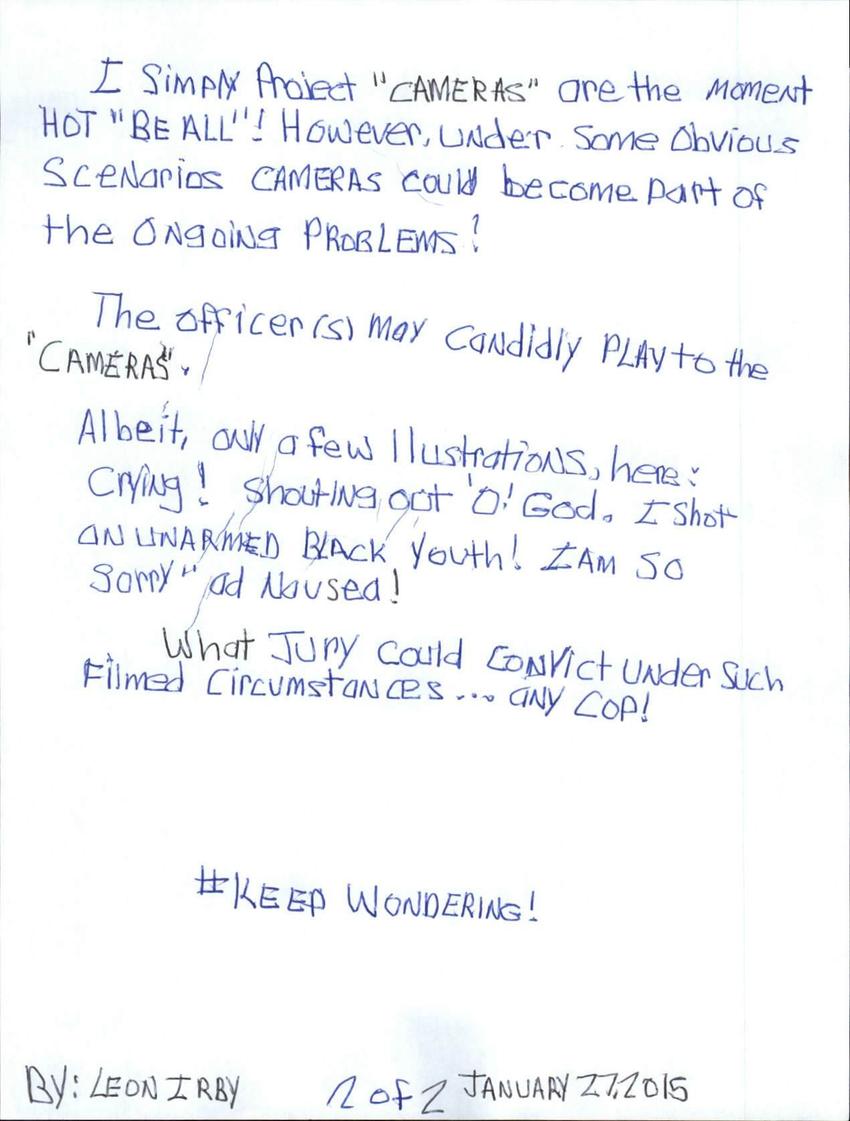 I Simply Project "CAMERAS" are the MOMENT
HOT "BE ALL"! However, under some obvious
Scenarios CAMERAS could become part of
the ONgoiNg PROBLEMS!
The officer(s) may candidly PLAY to the
"CAMERAS".
Albeit, only a few Ilustrations, here:
Crying! Shouting out 'O! God. I Shot
an UNARMED BLACK Youth! I AM SO
Sorry" ad Nausea!
What Jury Could CONVict UNder Such
Filmed Circumstances... any Cop!
#KEEP WONDERING!
BY: LEON IRBY 2 of 2 JANUARY 27,2015